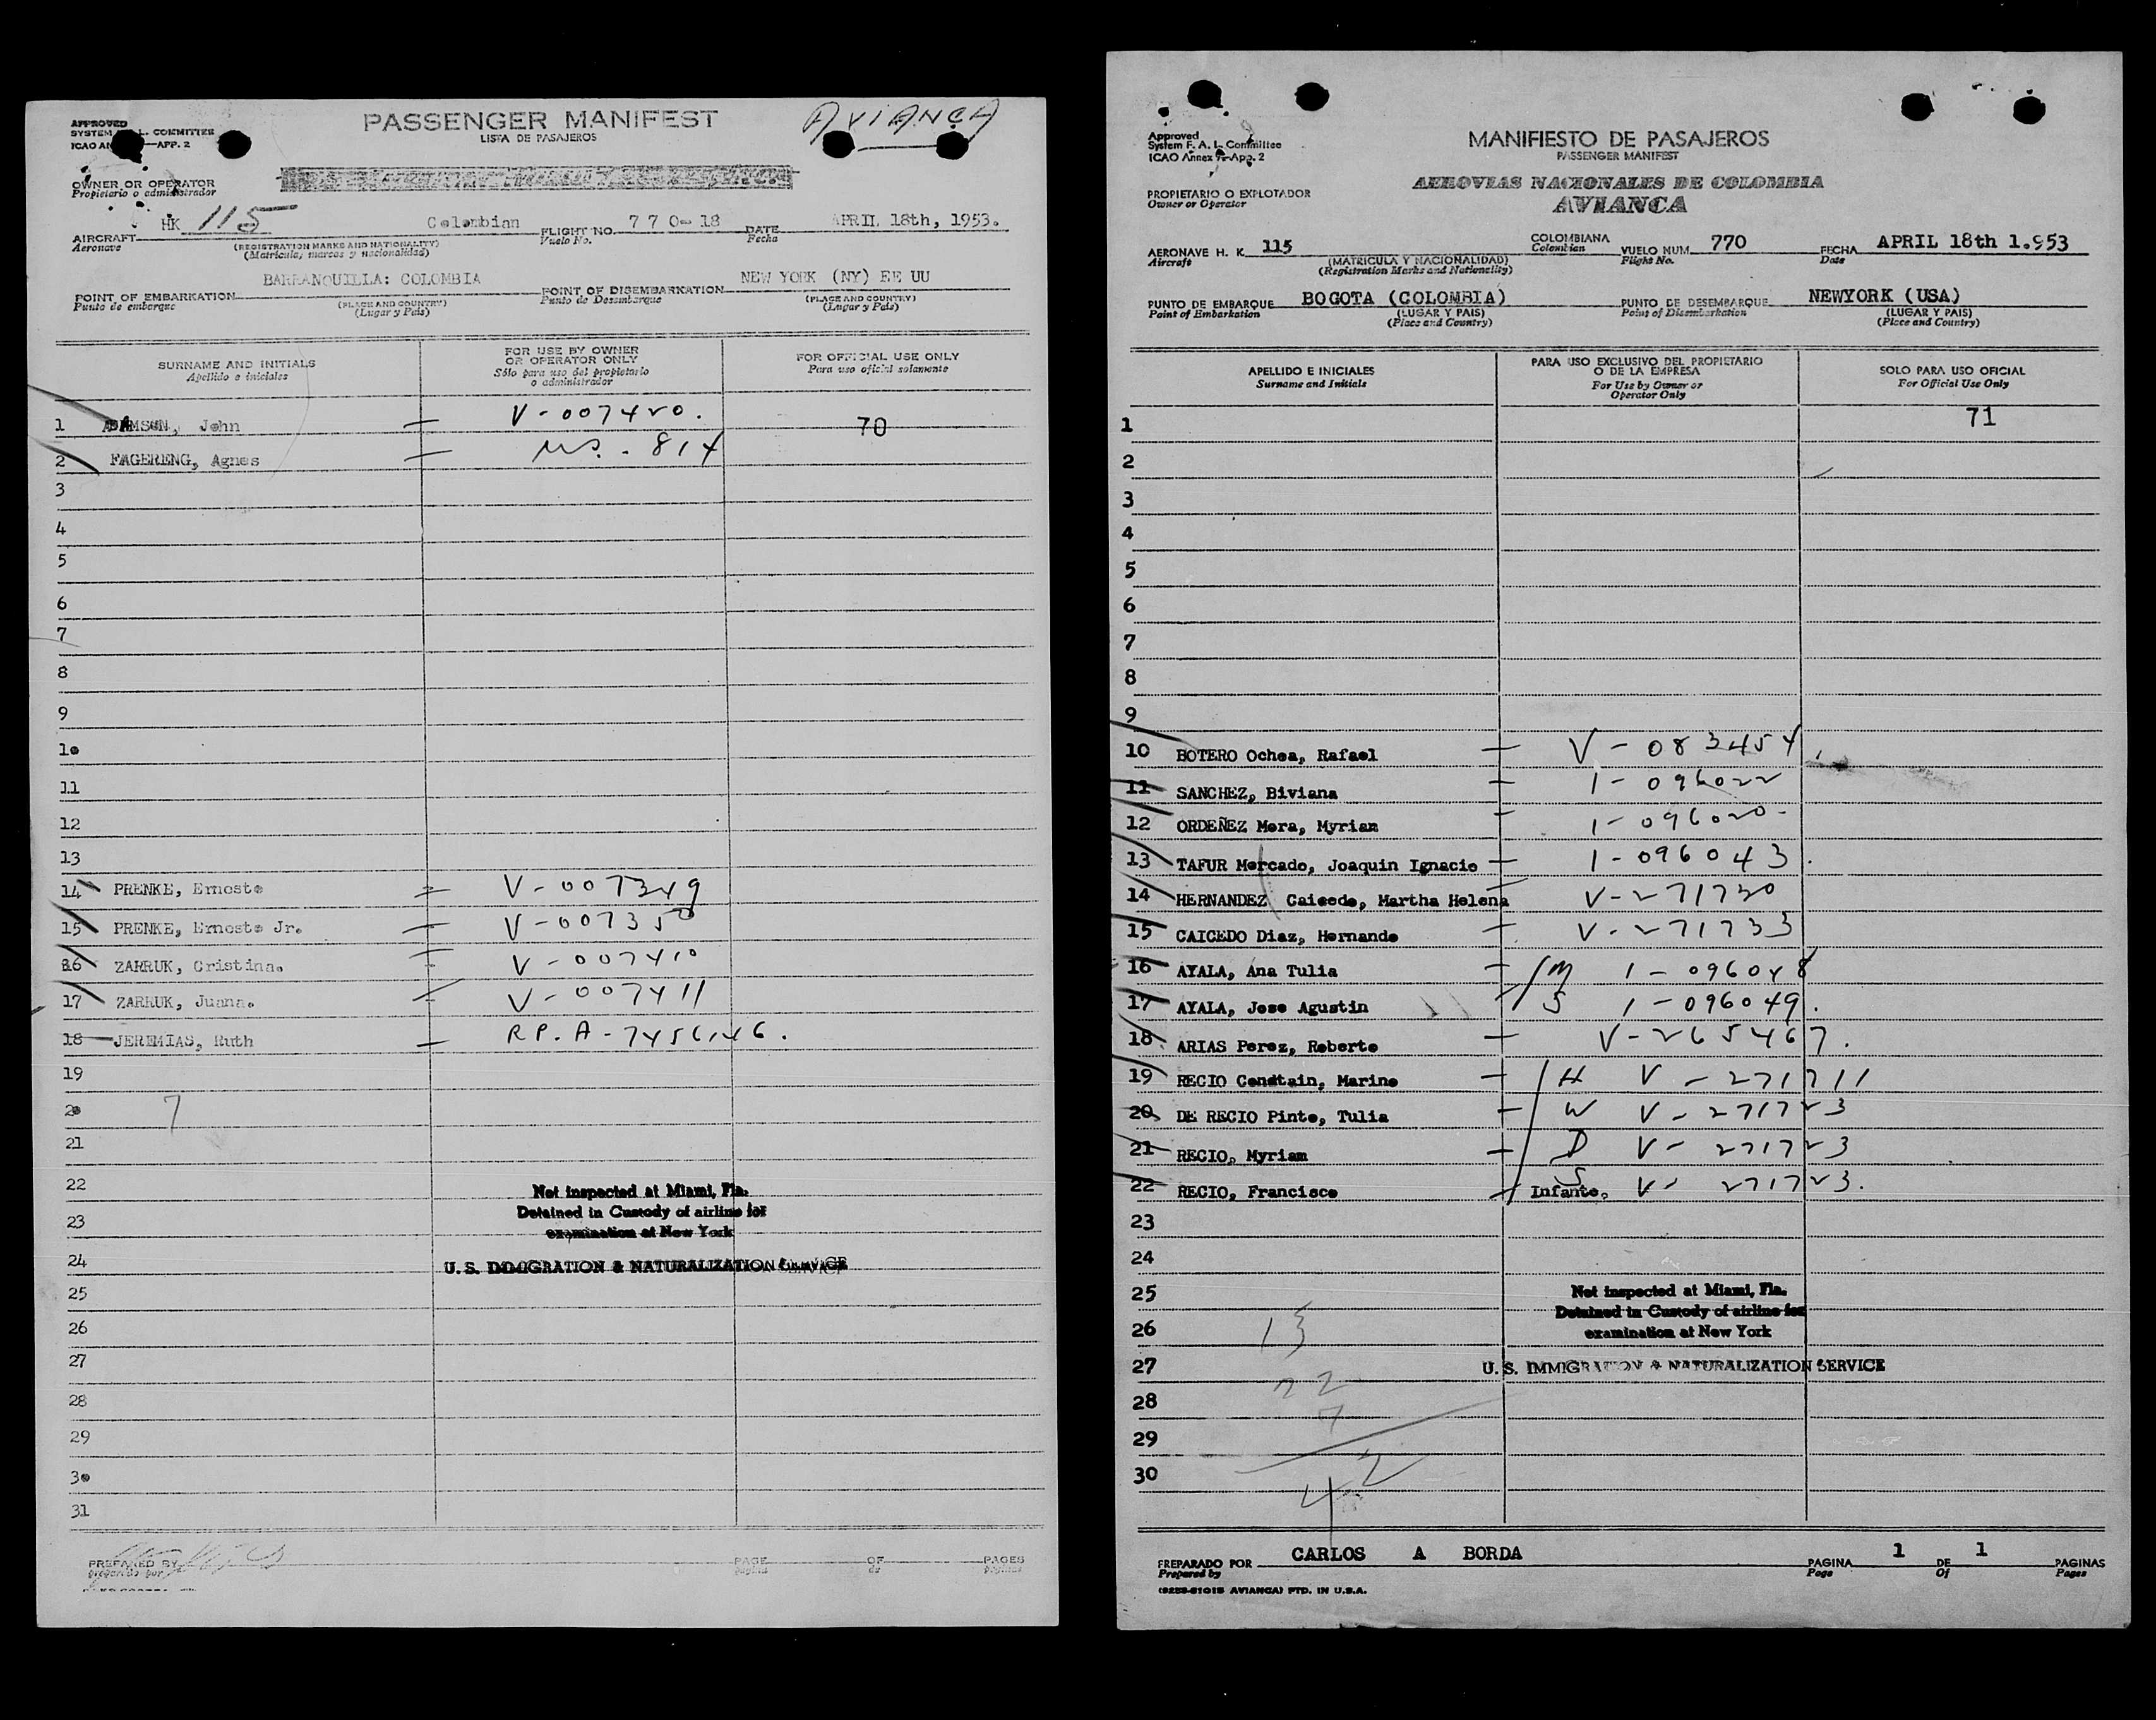 APPROVED
SYSTEM L. COMMITTEE
ICAO AN —APP. 2
PASSENGER MANIFEST
LISTA DE PASAJEROS
AVIANCA
OWNER OR OPERATOR
Propietario o administrador
HK 115 Colombian 770-18 APRIL 18th, 1953.
AIRCRAFT FLIGHT NO. DATE
Aeronave (REGISTRATION MARKS AND NATIONALITY) Vuelo No. Fecha
(Matricula, marcas y nacionalidad)
BARRANQUILLA: COLOMBIA NEW YORK (NY) EE UU
POINT OF EMBARKATION POINT OF DISEMBARKATION
Punto de embarque (PLACE AND COUNTRY) Punto de Desembarque (PLACE AND COUNTRY)
(Lugar y País) (Lugar y País)
SURNAME AND INITIALS FOR USE BY OWNER OR OPERATOR ONLY FOR OFFICIAL USE ONLY
Apellido e iniciales Sólo para uso del propietario o administrador Para uso oficial solamente
1 ADAMSON, John — V-007420. 70
2 FAGERENG, Agnes — -814
3
4
5
6
7
8
9
10
11
12
13
14 PRENKE, Ernesto — V-007349
15 PRENKE, Ernesto Jr. — V-007350
16 ZARRUK, Cristina. — V-007410
17 ZARRUK, Juana. — V-007411
18 JEREMIAS, Ruth — R.P. A-7456146.
19
20 7
21
22 Not inspected at Miami, Fla.
23 Detained in Custody of airline for
examination at New York
24 U. S. IMMIGRATION & NATURALIZATION SERVICE
25
26
27
28
29
30
31
PREPARED BY PAGE OF PAGES
preparado por página de páginas
Approved
System F. A. L. Committee
ICAO Annex 9-App. 2
MANIFIESTO DE PASAJEROS
PASSENGER MANIFEST
AEROVIAS NACIONALES DE COLOMBIA
AVIANCA
PROPIETARIO O EXPLOTADOR
Owner or Operator
AERONAVE H. K. 115 COLOMBIANA VUELO NUM. 770 FECHA APRIL 18th 1.953
Aircraft (MATRICULA Y NACIONALIDAD) Colombian Flight No. Date
(Registration Marks and Nationality)
PUNTO DE EMBARQUE BOGOTA (COLOMBIA) PUNTO DE DESEMBARQUE NEWYORK (USA)
Point of Embarkation (LUGAR Y PAIS) Point of Disembarkation (LUGAR Y PAIS)
(Place and Country) (Place and Country)
APELLIDO E INICIALES PARA USO EXCLUSIVO DEL PROPIETARIO O DE LA EMPRESA SOLO PARA USO OFICIAL
Surname and Initials For Use by Owner or Operator Only For Official Use Only
1 71
2
3
4
5
6
7
8
9
10 BOTERO Ochoa, Rafael — V-083454
11 SANCHEZ, Biviana — 1-096022
12 ORDEÑEZ Mora, Myriam — 1-096020-
13 TAFUR Mercado, Joaquin Ignacio — 1-096043.
14 HERNANDEZ Caicedo, Martha Helena — V-271730
15 CAICEDO Diaz, Hernando — V-271733
16 AYALA, Ana Tulia — M 1-096048
17 AYALA, Jose Agustin — S 1-096049.
18 ARIAS Perez, Roberto — V-265467.
19 RECIO Condtain, Marino — H V-271711
20 DE RECIO Pinto, Tulia — W V-271723
21 RECIO, Myriam — D V-271723
22 RECIO, Francisco — Infante. S V-271723.
23
24
25 Not inspected at Miami, Fla.
Detained in Custody of airline for
26 13 examination at New York
27 U. S. IMMIGRATION & NATURALIZATION SERVICE
22
28 7
29
30 42
PREPARADO POR CARLOS A BORDA PAGINA 1 DE 1 PAGINAS
Prepared by Page Of Pages
(9253-5101S AVIANCA) PTD. IN U.S.A.